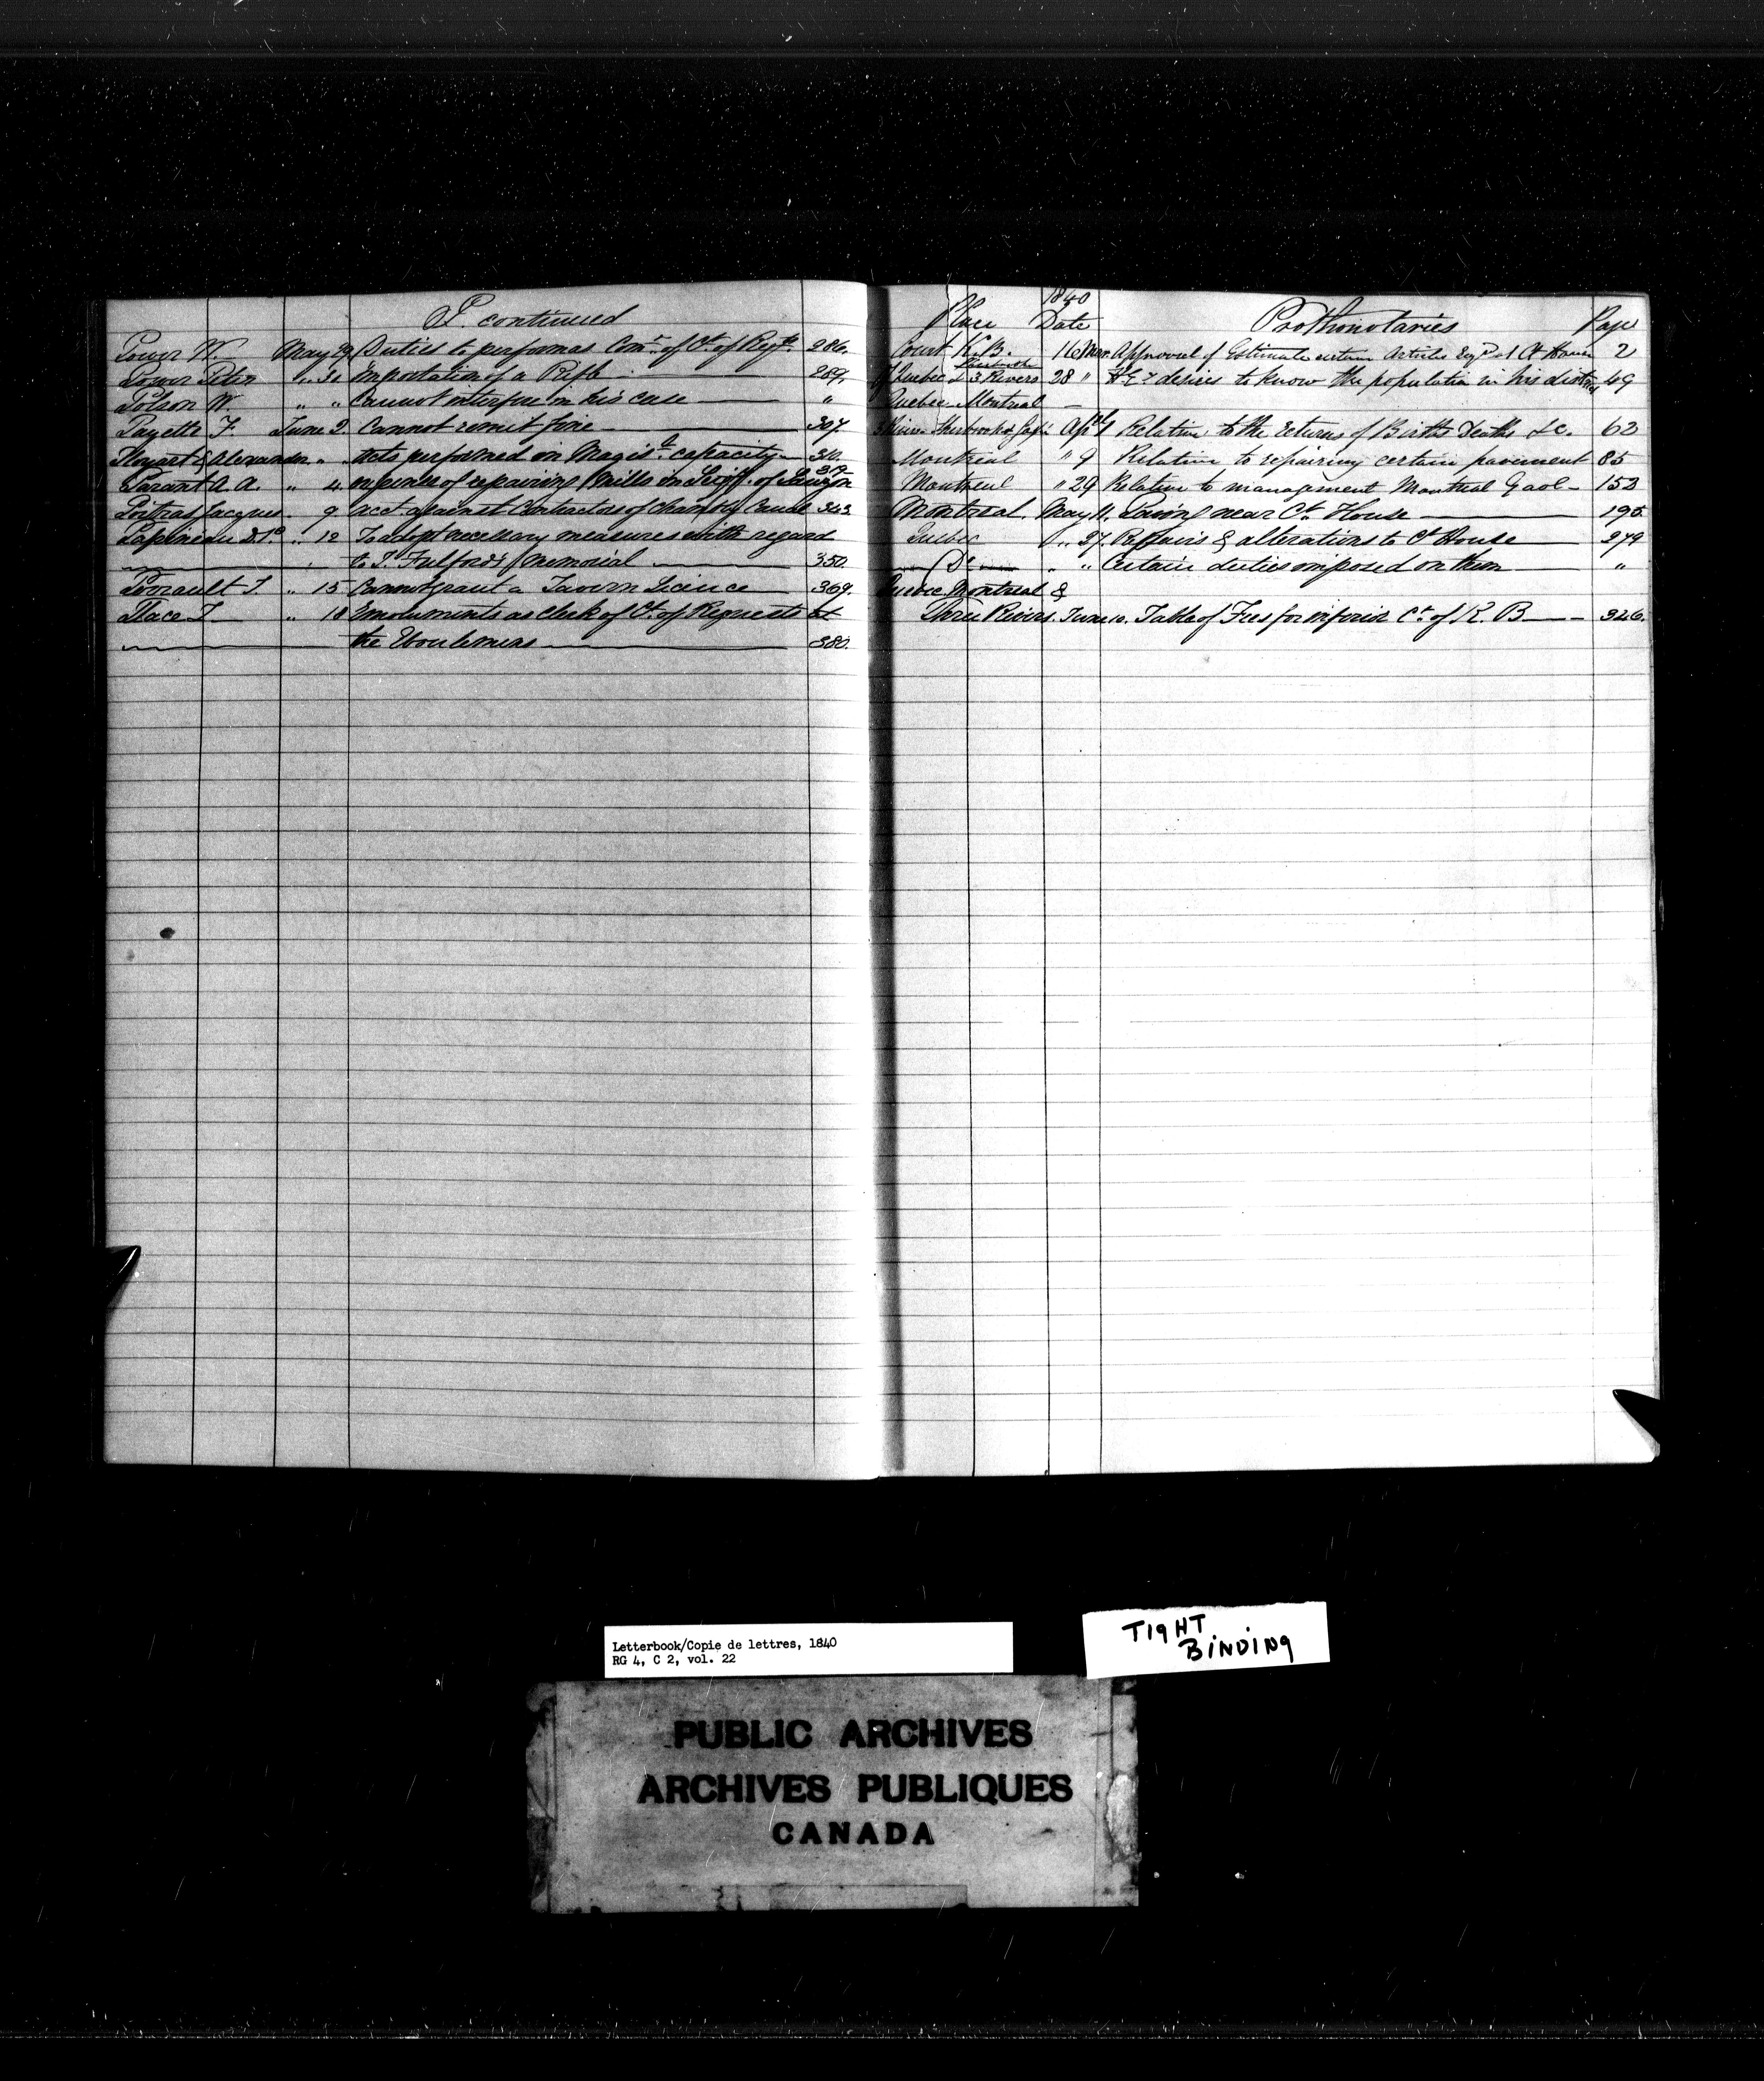 P. continued
Power W. May 29 Duties to perform as Comr. of Ct. of Reqts. 286.
Power Peter " 30 importation of a Rifle 289.
Polson W. " " Cannot interfere in his case "
Payette F. June 2. Cannot remit fine 307.
& Alexander " " Acts performed in Magist. capacity 310.
Parant A. A. " 4. expense of repairing Mills in Seigy. of Lauzon 319
Poitras Jacques " 9 acct against Contractors of Chambly Canal 343
Papineau D. B. " 12 To adopt necessary measures with regard
to Fulford's Memorial 350.
" 15 Cannot grant a Tavern Licence 369.
Place T. " 18 Emoluments as Clerk of Ct. of Requests at
the Eboulemens 380.
1840
Place Date Prothonotaries Page
Court K. B. 16 Mar. Approval of Estimate certain Articles Reqd. at Ct House 2
Quebec & 3 Rivers 28 " H Ey desires to know the population in his district 49
Quebec Montreal
3 Rivers Sherbrooke Gaspé Apl 1 Relative to the returns of Births Deaths &c. 62
Montreal " 9 Relative to repairing certain pavement 85
Montreal " 29 Relative to management Montreal Gaol 153
Montreal. May 11. Paving near Ct. House 195
Quebec " 27. Repairs & alterations to Ct House 279
Do " " Certain duties imposed on them "
Quebec Montreal &
Three Rivers. June 10. Table of Fees for inferior Ct. of K. B 346.
Letterbook/Copie de lettres, 1840
RG 4, C 2, vol. 22
TIGHT
BINDING
PUBLIC ARCHIVES
ARCHIVES PUBLIQUES
CANADA